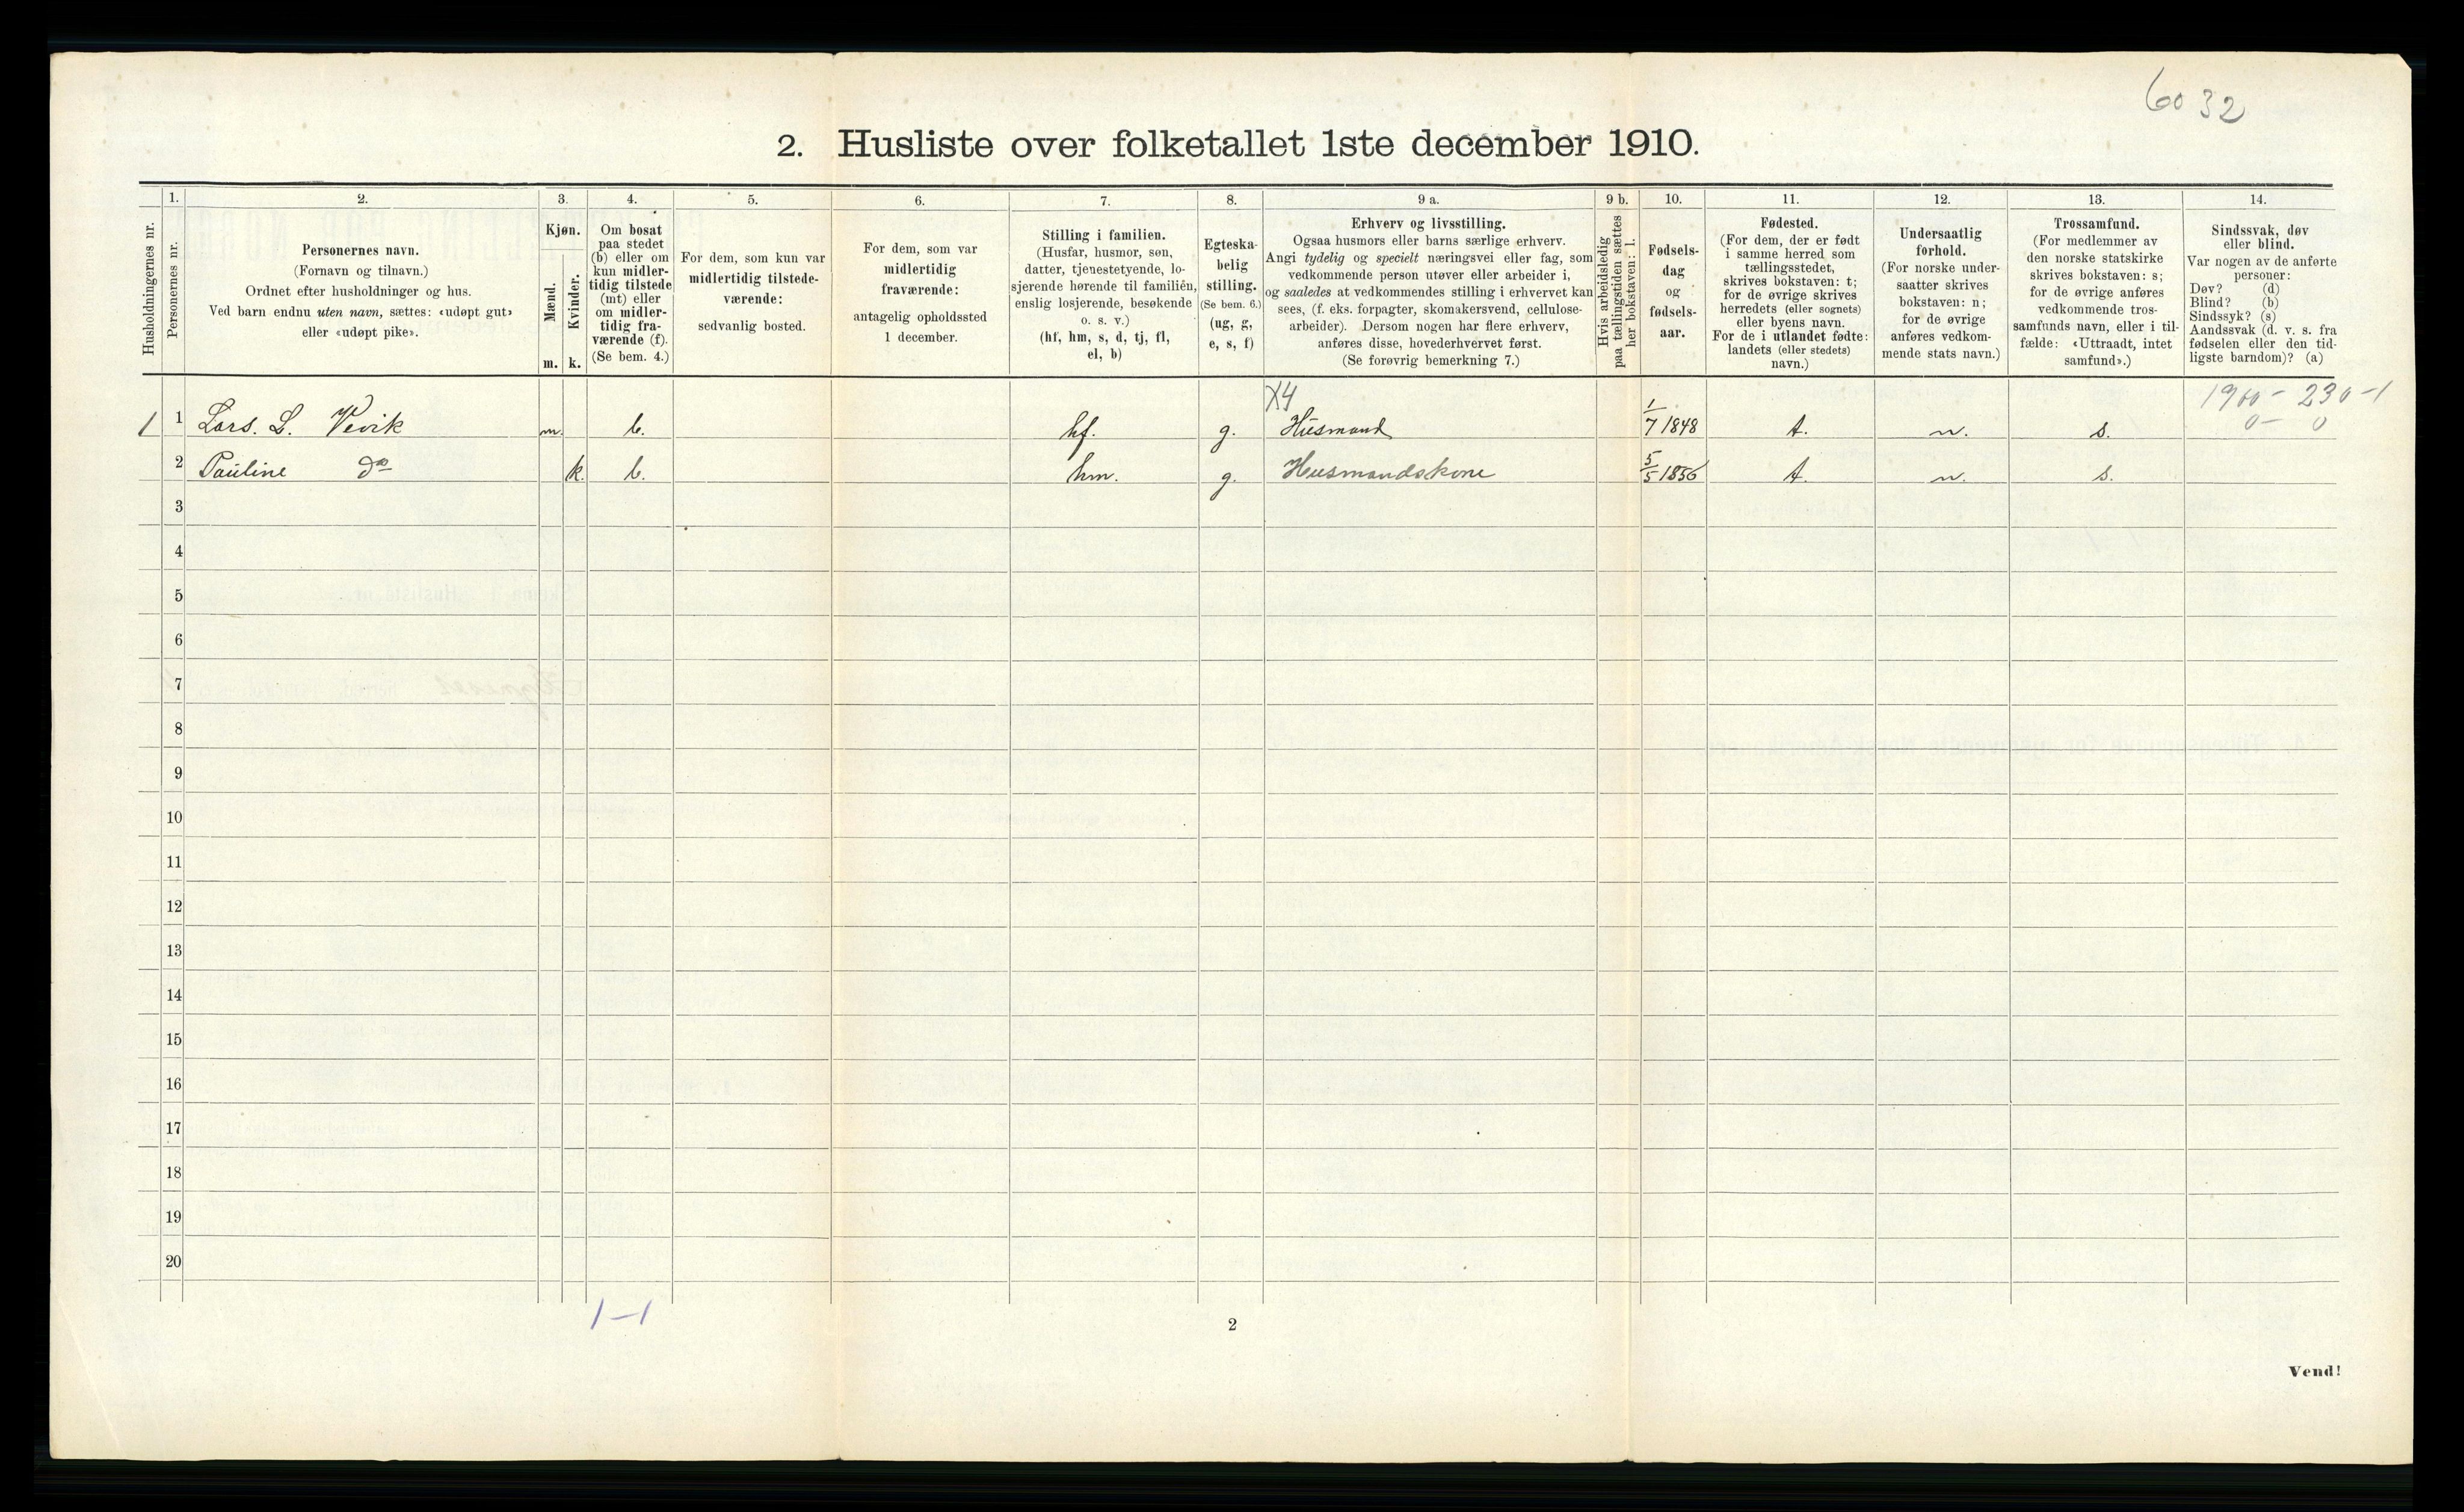 6032
2. Husliste over folketallet 1ste december 1910.
Husholdningernes nr.
1.
Personernes nr.
2.
Personernes navn.
(Fornavn og tilnavn.)
Ordnet efter husholdninger og hus.
Ved barn endnu uten navn, sættes: «udøpt gut»
eller «udøpt pike».
3.
Kjøn.
Mænd.
m.
Kvinder.
k.
4.
Om bosat
paa stedet
(b) eller om
kun midler-
tidig tilstede
(mt) eller
om midler-
tidig fra-
værende (f).
(Se bem. 4.)
5.
For dem, som kun var
midlertidig tilstede-
værende:
sedvanlig bosted.
6.
For dem, som var
midlertidig
fraværende:
antagelig opholdssted
1 december.
7.
Stilling i familien.
(Husfar, husmor, søn,
datter, tjenestetyende, lo-
sjerende hørende til familien,
enslig losjerende, besøkende
o. s. v.)
(hf, hm, s, d, tj, fl,
el, b)
8.
Egteska-
belig
stilling.
(Se bem. 6.)
(ug, g,
e, s, f)
9 a.
Erhverv og livsstilling.
Ogsaa husmors eller barns særlige erhverv.
Angi tydelig og specielt næringsvei eller fag, som
vedkommende person utøver eller arbeider i,
og saaledes at vedkommendes stilling i erhvervet kan
sees, (f. eks. forpagter, skomakersvend, cellulose-
arbeider). Dersom nogen har flere erhverv,
anføres disse, hovederhvervet først.
(Se forøvrig bemerkning 7.)
9 b.
Hvis arbeidsledig
paa tællingstiden sættes
her bokstaven: l.
10.
Fødsels-
dag
og
fødsels-
aar.
11.
Fødested.
(For dem, der er født
i samme herred som
tællingsstedet,
skrives bokstaven: t;
for de øvrige skrives
herredets (eller sognets)
eller byens navn.
For de i utlandet fødte:
landets (eller stedets)
navn.)
12.
Undersaatlig
forhold.
(For norske under-
saatter skrives
bokstaven: n;
for de øvrige
anføres vedkom-
mende stats navn.)
13.
Trossamfund.
(For medlemmer av
den norske statskirke
skrives bokstaven: s;
for de øvrige anføres
vedkommende tros-
samfunds navn, eller i til-
fælde: «Uttraadt, intet
samfund».)
14.
Sindssvak, døv
eller blind.
Var nogen av de anførte
personer:
Døv? (d)
Blind? (b)
Sindssyk? (s)
Aandssvak (d. v. s. fra
fødselen eller den tid-
ligste barndom)? (a)
X4
1900 - 230 - 1
0 - 0
1 1 Lars. L. Vevik m. b. hf. g. Husmand 1/7 1848 t. n. s.
2 Pauline do k. b. hm. g. Husmandskone 5/5 1856 t. n. s.
3
4
5
6
7
8
9
10
11
12
13
14
15
16
17
18
19
20
1-1
2
Vend!